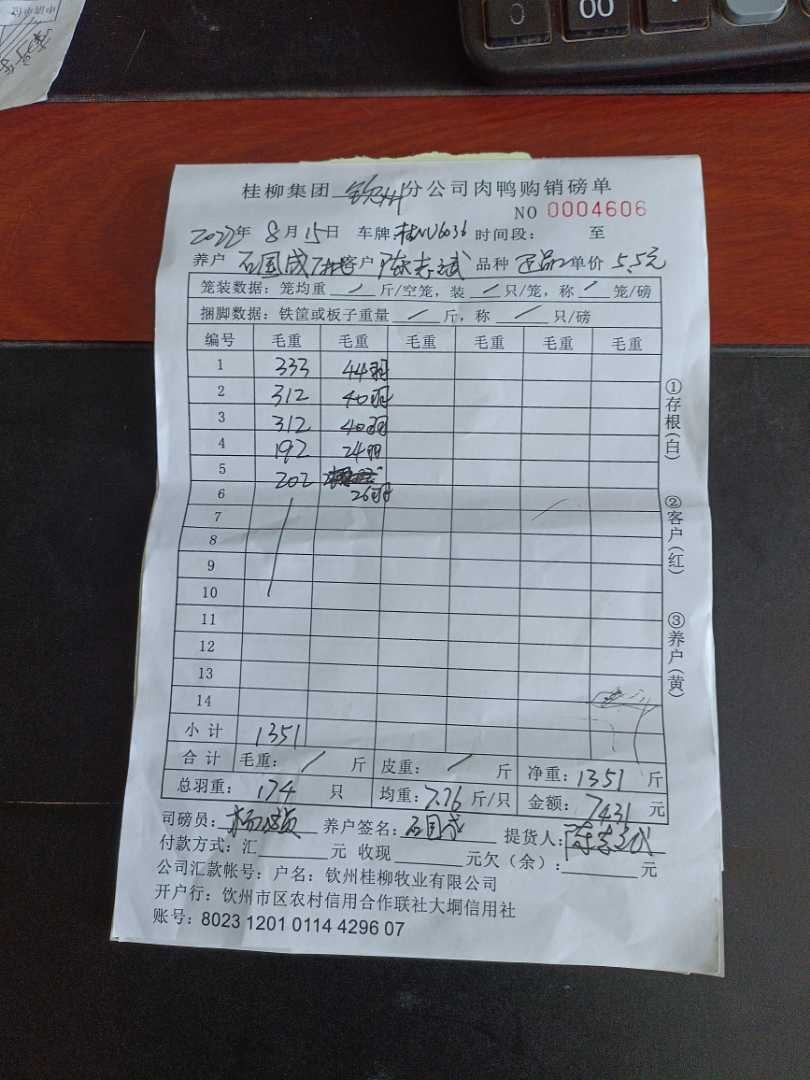 00
桂柳集团 钦州 分公司肉鸭购销磅单
NO 0004606
2022年 8月15日 车牌 桂NU6036 时间段: 至
养户 石国成 客户 陈志斌 品种 正品2 单价 5.5元
笼装数据: 笼均重 / 斤/空笼, 装 / 只/笼, 称 / 笼/磅
捆脚数据: 铁筐或板子重量 / 斤, 称 / 只/磅
编号 毛重 毛重 毛重 毛重 毛重 毛重
1 333 44羽
2 312 40羽
3 312 40羽
4 192 24羽
5 202
6 26羽
7
8
9
10
11
12
13
14
小计 1351
合计 毛重: / 斤 皮重: / 斤 净重: 1351 斤
总羽重: 174 只 均重: 7.76 斤/只 金额: 7431 元
司磅员: 养户签名: 石国成 提货人: 陈志斌
付款方式: 汇 元 收现 元欠(余): 元
公司汇款帐号: 户名: 钦州桂柳牧业有限公司
开户行: 钦州市区农村信用合作联社大垌信用社
账号: 8023 1201 0114 4296 07
①存根(白)
②客户(红)
③养户(黄)